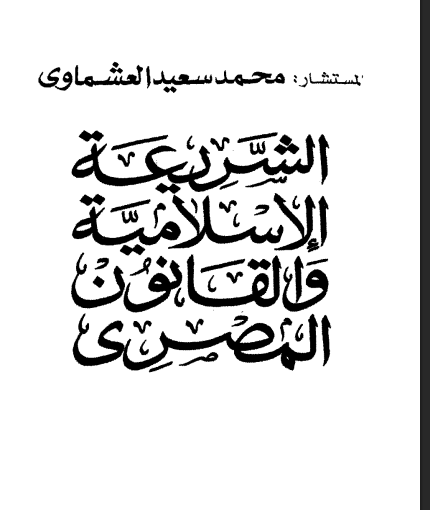 المستشار: محمد سعيد العشماوى
الشَّرِيعَة
الإسْلاَميَّة
وَالقَانوُنْ
المصْرِى